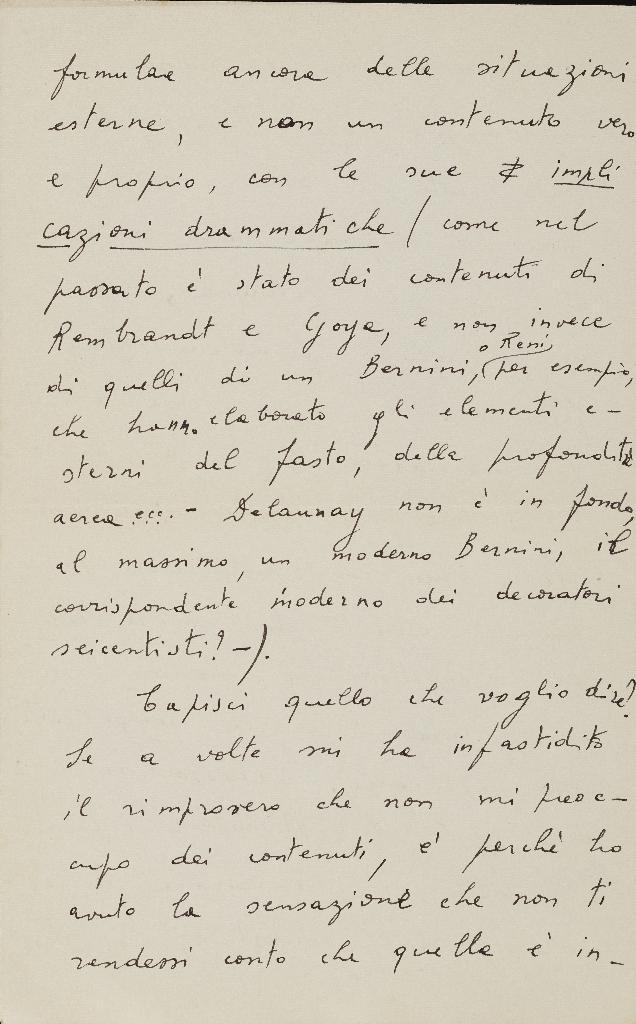 formulare ancora delle situazioni
esterne, e non un contenuto vero
e proprio, con le sue impli
cazioni drammatiche (come nel
passato è stato dei contenuti di
Rembrandt e Goya, e non invece
o Reni,
di quelli di un Bernini, per esempio,
che hanno elaborato gli elementi e-
sterni del fasto, della profondità
aerea ecc. - Delaunay non è in fondo,
al massimo, un moderno Bernini, il
corrispondente moderno dei decoratori
seicentisti? -).
Capisci quello che voglio dire?
Se a volte mi ha infastidito
il rimprovero che non mi preoc-
cupo dei contenuti, è perchè ho
avuto la sensazione che non ti
rendessi conto che quella è in-